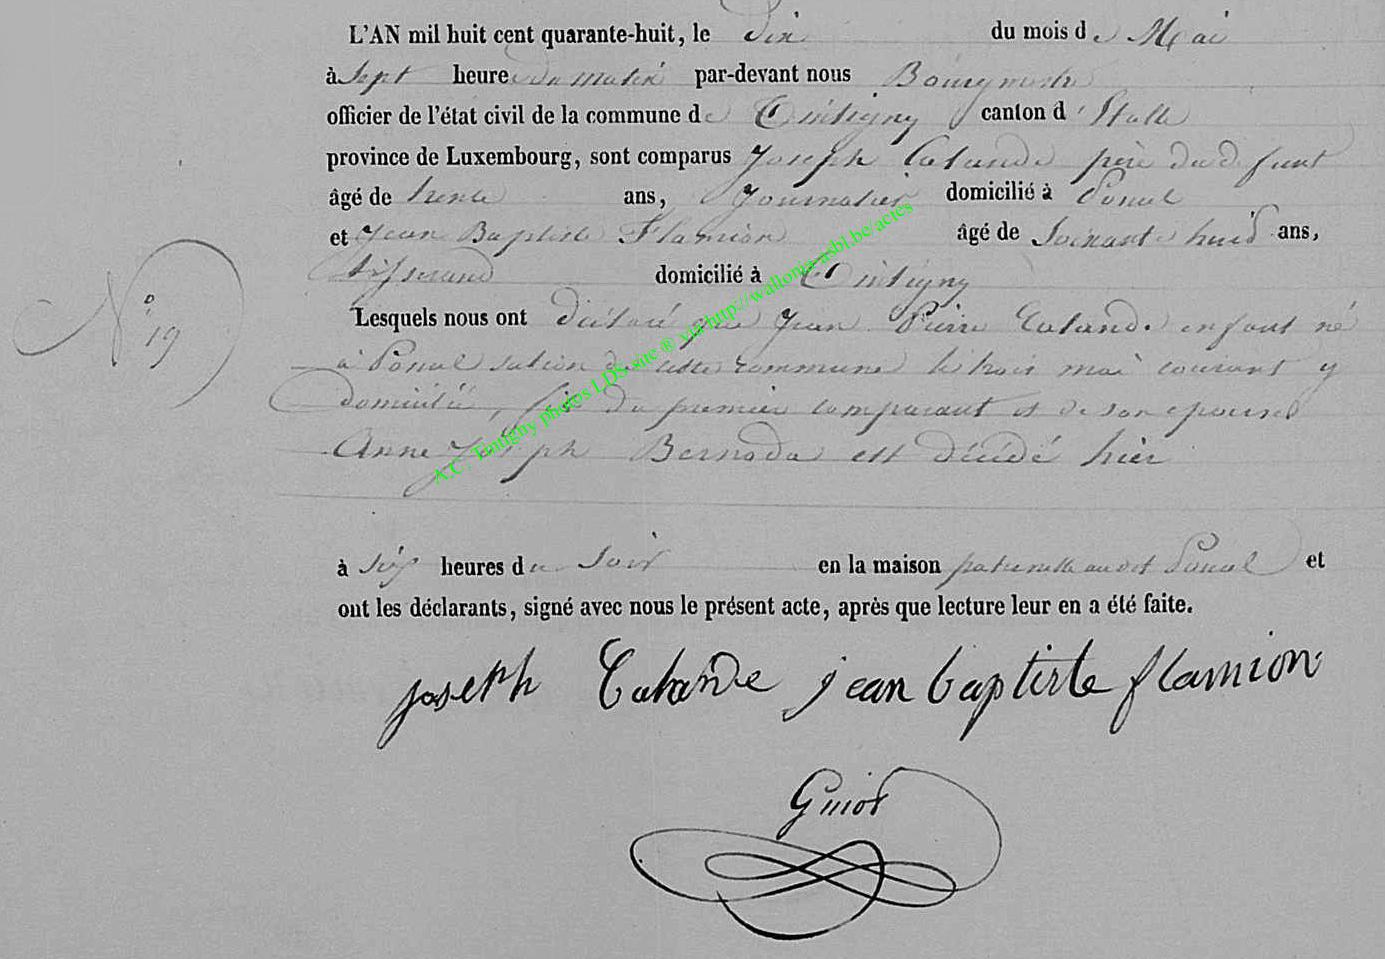 L'AN mil huit cent quarante-huit, le dix du mois de Mai
à Sept heures du matin par-devant nous Bourgmestre
officier de l'état civil de la commune de Tintigny canton d'Etalle
province de Luxembourg, sont comparus Joseph Lalande père du défunt
âgé de trente ans, Journalier domicilié à
et Jean Baptiste Flamion âgé de Soixante huit ans,
tisserand domicilié à Tintigny
N° 19
Lesquels nous ont déclaré que Jean Pierre Lalande enfant né
à section de cette commune le trois mai courant y
domicilié, fils du premier comparant et de son épouse
Anne Joseph est décédé hier
à Six heures du Soir en la maison paternelle audit et
ont les déclarants, signé avec nous le présent acte, après que lecture leur en a été faite.
joseph jean baptiste flamion
Guiot
A.C. Tintigny photos LDS site ® via http://wallonia-asbl.be/actes